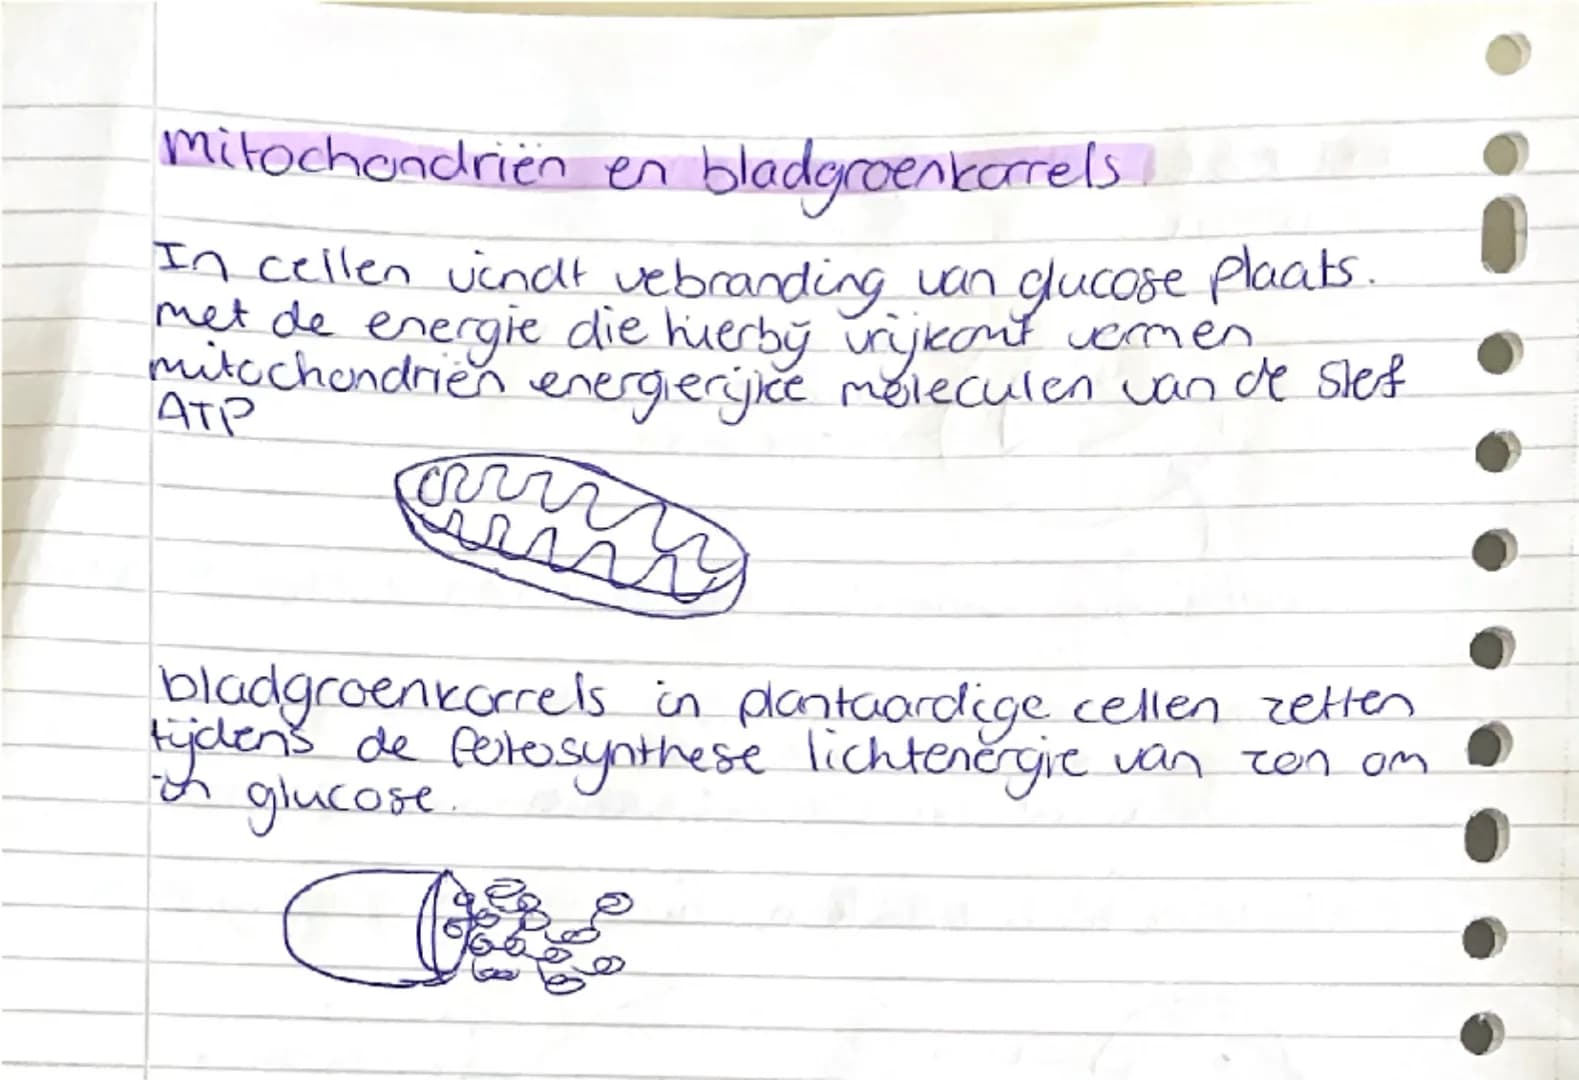 mitochondriën en bladgroenkorrels
In cellen vindt vebranding van glucose plaats.
met de energie die hierbij vrijkomt vormen
mitochondriën energierijke moleculen van de stof
ATP
bladgroenkorrels in plantaardige cellen zetten
tijdens de fotosynthese lichtenergie van zon om
in glucose.